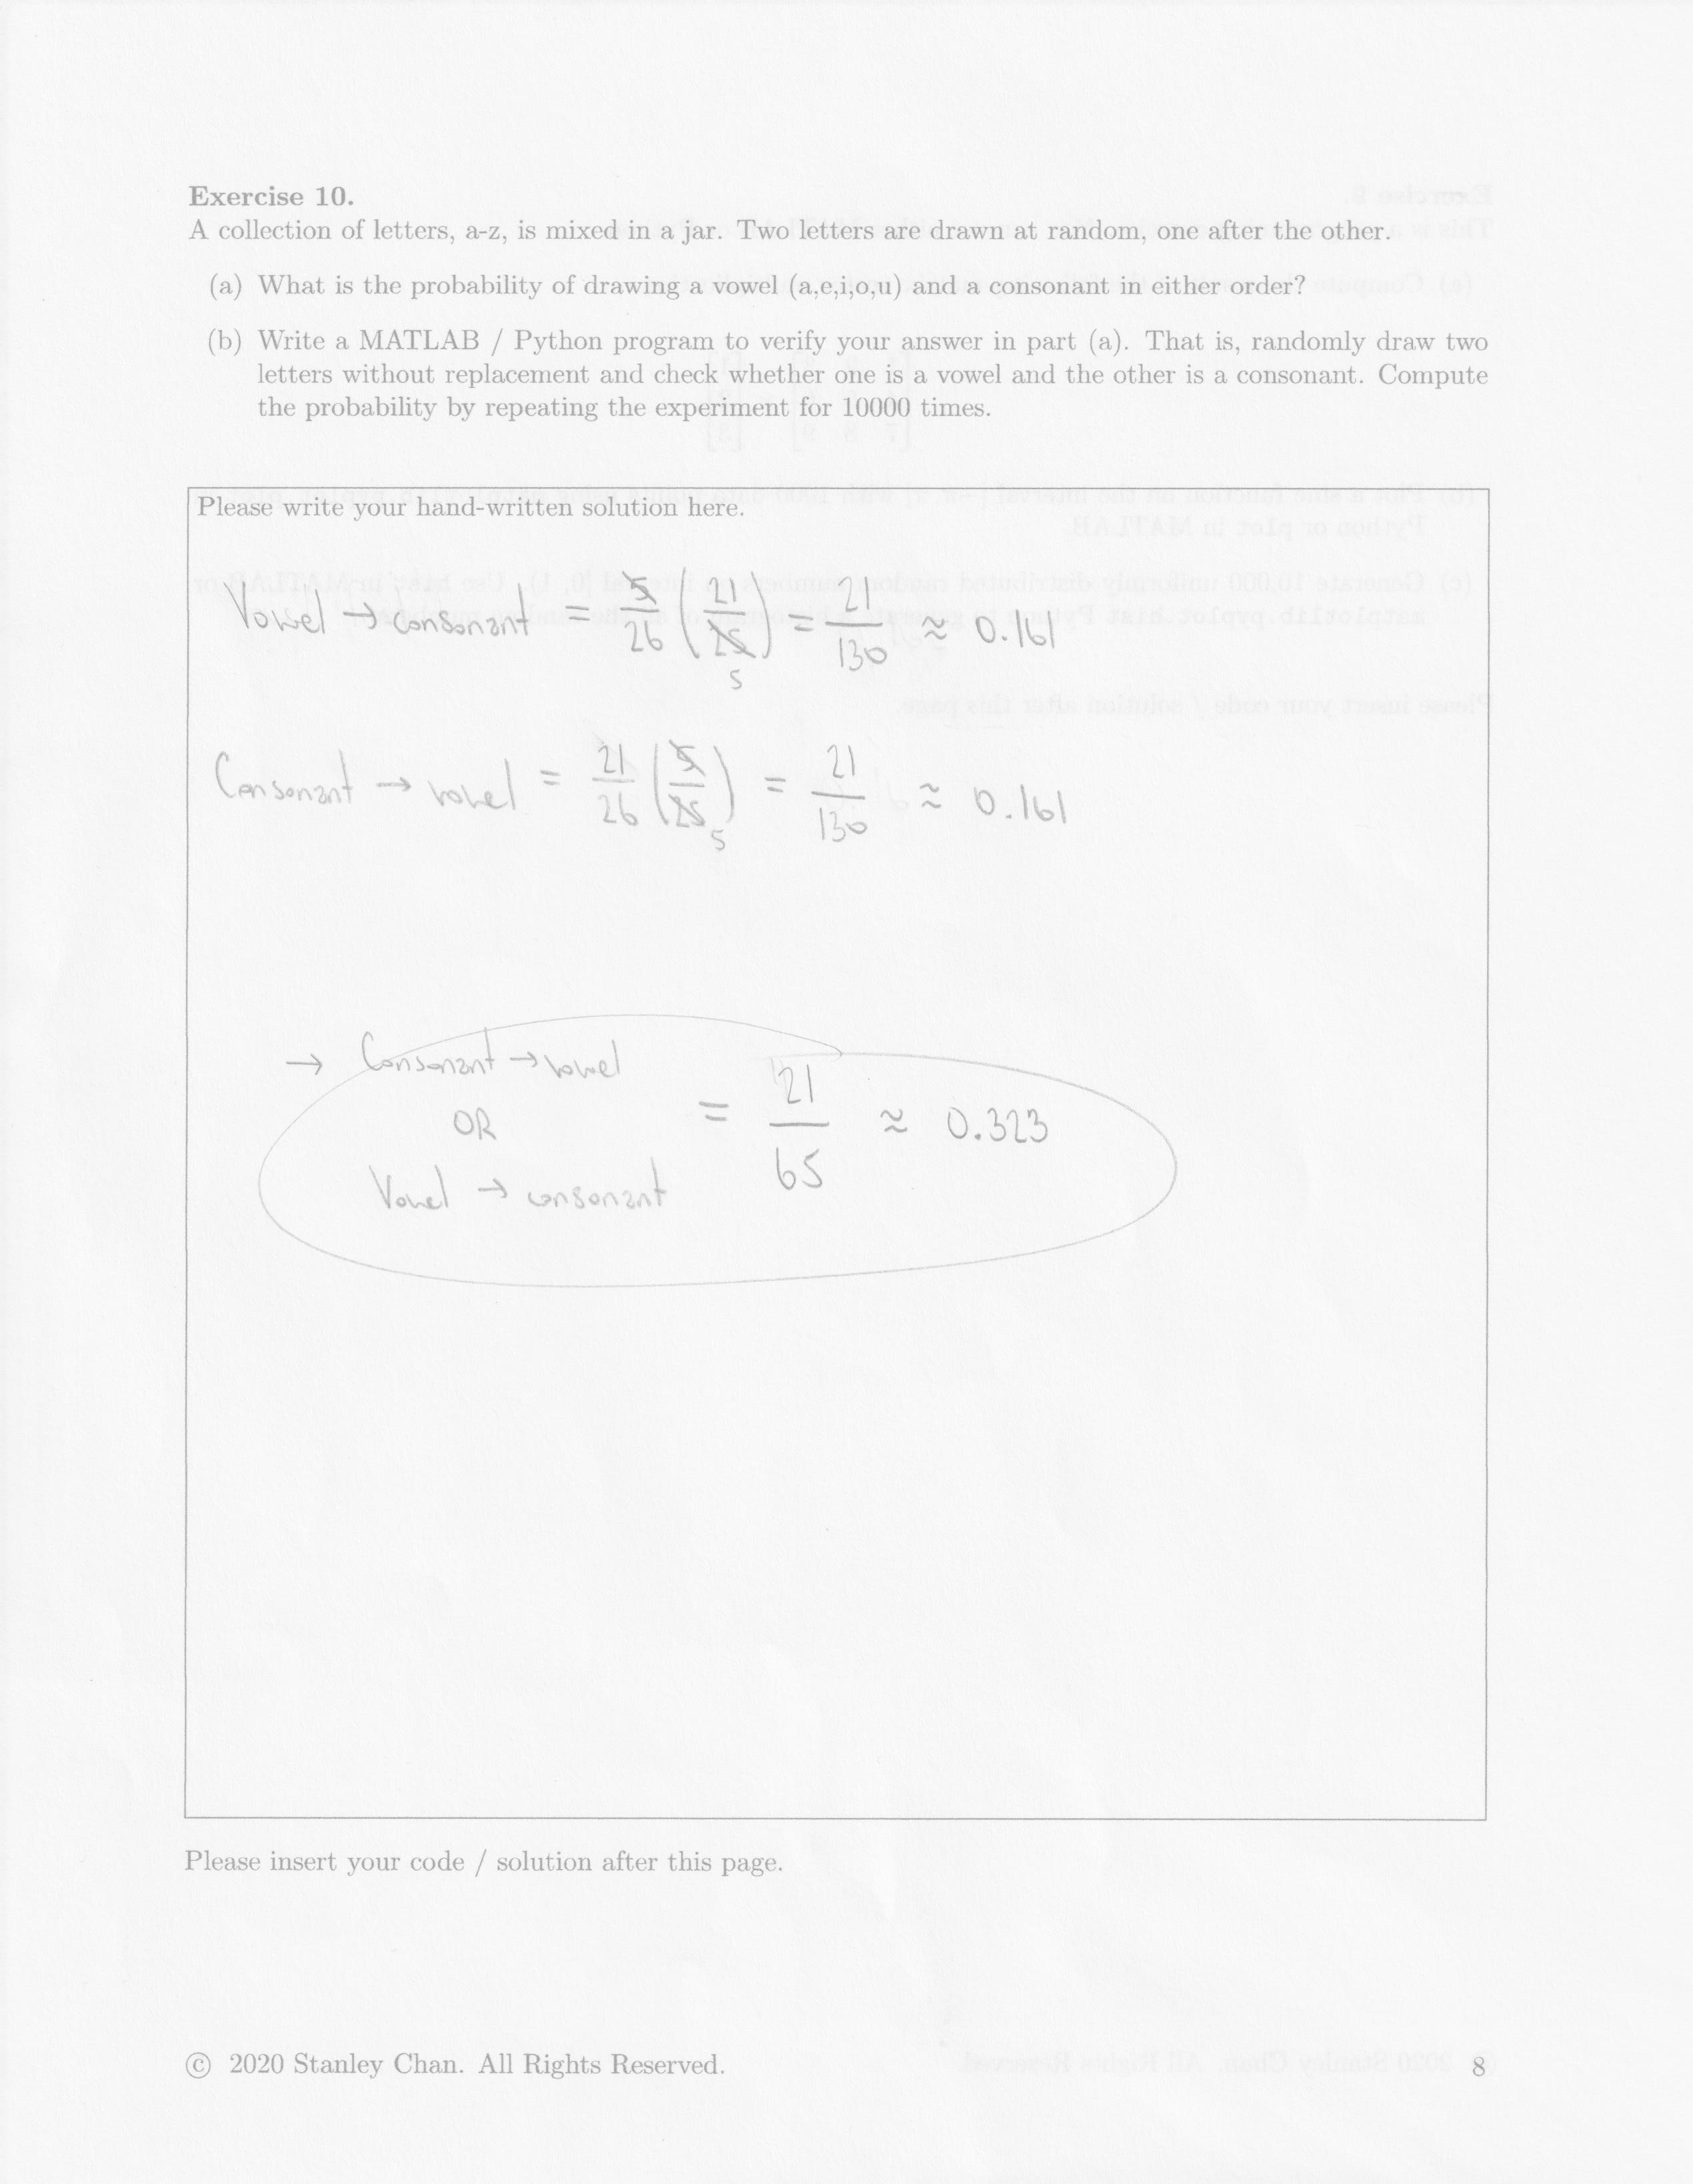 Exercise 10.
A collection of letters, a-z, is mixed in a jar. Two letters are drawn at random, one after the other.
(a) What is the probability of drawing a vowel (a,e,i,o,u) and a consonant in either order?
(b) Write a MATLAB / Python program to verify your answer in part (a). That is, randomly draw two
letters without replacement and check whether one is a vowel and the other is a consonant. Compute
the probability by repeating the experiment for 10000 times.
Please write your hand-written solution here.
Vowel → consonant = 5/26 (21/25) = 21/130 ≈ 0.161
5
Consonant → vowel = 21/26 (5/25) = 21/130 ≈ 0.161
5
→ Consonant → vowel
OR = 21/65 ≈ 0.323
Vowel → consonant
Please insert your code / solution after this page.
© 2020 Stanley Chan. All Rights Reserved. 8